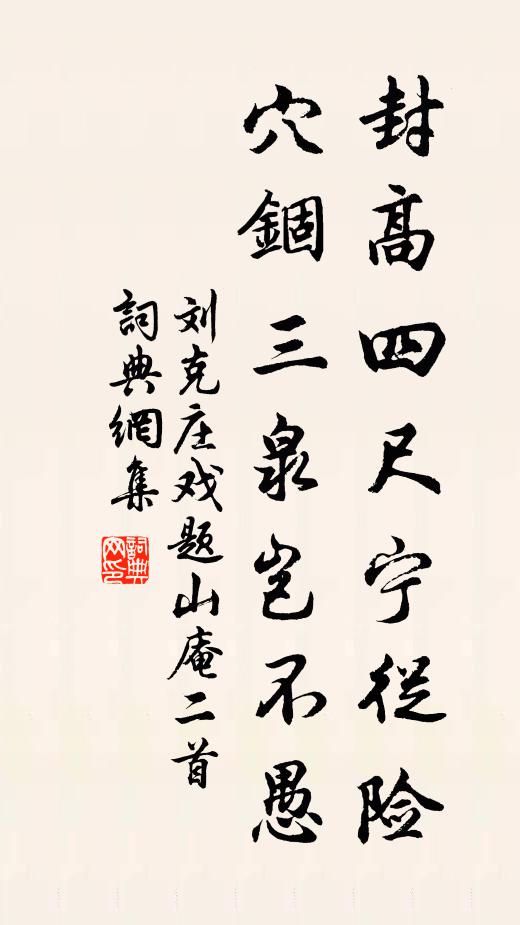 封高四尺宁從险
穴錮三泉岂不愚
刘克庄戏题山庵二首
詞典網集
詞典网印